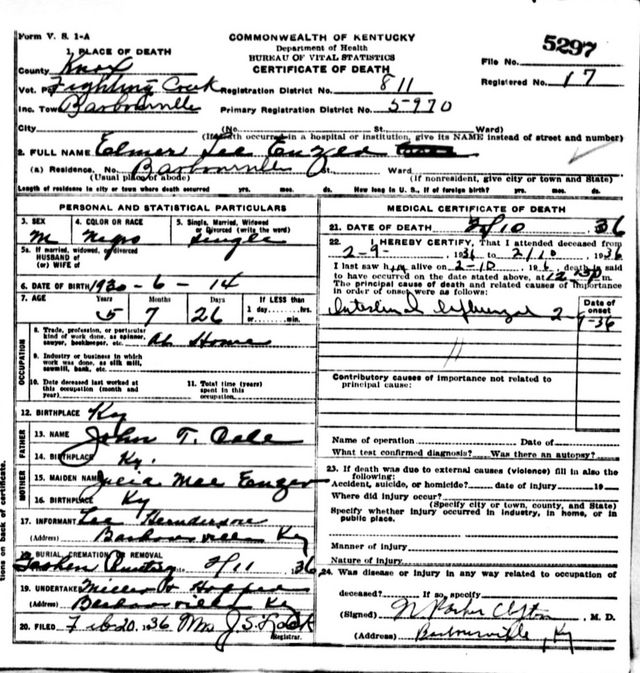 Form V. S. 1-A
COMMONWEALTH OF KENTUCKY
Department of Health
BUREAU OF VITAL STATISTICS
CERTIFICATE OF DEATH
5297
File No.
Registered No. 17
1. PLACE OF DEATH
County Knox
Vot. P Fighting Creek Registration District No. 811
Inc. Town Barbourville Primary Registration District No. 5970
City (No. St. Ward)
(If death occurred in a hospital or institution, give its NAME instead of street and number)
2. FULL NAME Elmer Lee
(a) Residence. No. Barbourville St. Ward
(Usual place of abode) (If nonresident, give city or town and State)
Length of residence in city or town where death occurred yrs. mos. ds. How long in U. S., if of foreign birth? yrs. mos. ds.
PERSONAL AND STATISTICAL PARTICULARS
3. SEX 4. COLOR OR RACE 5. Single, Married, Widowed or Divorced (write the word)
M Negro Single
5a. If married, widowed, or divorced
HUSBAND of
(or) WIFE of
6. DATE OF BIRTH 1930-6-14
7. AGE Years Months Days If LESS than
5 7 26 1 day hrs.
or min.
OCCUPATION
8. Trade, profession, or particular
kind of work done, as spinner,
sawyer, bookkeeper, etc. At Home
9. Industry or business in which
work was done, as silk mill,
sawmill, bank, etc.
10. Date deceased last worked at
this occupation (month and
year)
11. Total time (years)
spent in this
occupation
12. BIRTHPLACE Ky
FATHER
13. NAME John T. Cole
14. BIRTHPLACE Ky.
MOTHER
15. MAIDEN NAME Julia Mae
16. BIRTHPLACE Ky
17. INFORMANT Lee Hernderson
(Address) Barbourville Ky
BURIAL, CREMATION OR REMOVAL
2/11 36
19. UNDERTAKER Miller
(Address) Barbourville Ky
20. FILED Feb 20, 1936 Mrs J. S.
Registrar.
MEDICAL CERTIFICATE OF DEATH
21. DATE OF DEATH 2/10 36
22. I HEREBY CERTIFY, That I attended deceased from
2-9- , 1936 to 2/10 , 1936
I last saw him alive on 2-10 , death is said
to have occurred on the date stated above, at m.
The principal cause of death and related causes of importance
in order of onset were as follows:
Date of
onset
Intestinal Influenza 2-9-36
Contributory causes of importance not related to
principal cause:
Name of operation Date of
What test confirmed diagnosis? Was there an autopsy?
23. If death was due to external causes (violence) fill in also the
following:
Accident, suicide, or homicide? date of injury 19
Where did injury occur?
(Specify city or town, county, and State)
Specify whether injury occurred in industry, in home, or in
public place.
Manner of injury
Nature of injury
24. Was disease or injury in any way related to occupation of
deceased? If so, specify
(Signed) M. D.
(Address) Barbourville, Ky
tions on back of certificate.